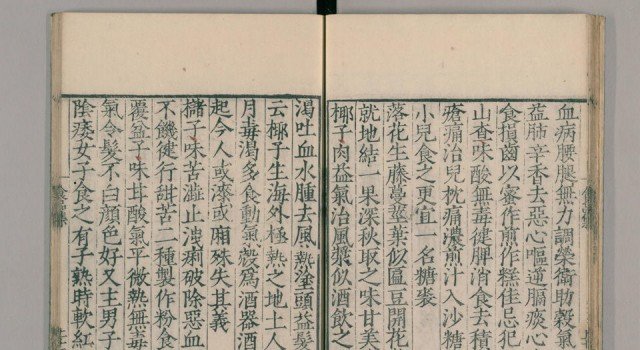 血病腰腿無力調榮衛助穀氣
益肺辛香去惡心嘔逆膈痰心
食損齒以蜜作煎作糕佳忌犯
山查味酸無毒健脾消食去積
瘡痛治兒枕痛濃煎汁入沙糖
小兒食之更宜一名糖裘
落花生藤蔓莖葉似匾豆開花
就地結一果深秋取之味甘美
椰子肉益氣治風漿似酒飲之
渴吐血水腫去風熱塗頭益髮
云椰子生海外極熱之地土人
月毒渴多食動氣殼為酒器酒
起今人或漆或廂殊失其義
櫧子味苦澁止洩痢破除惡血
不饑健行甜苦二種製作粉食
覆盆子味甘酸氣平微熱無毒
氣令髮不白顏色好又主男子
陰痿女子食之有子熟時軟紅